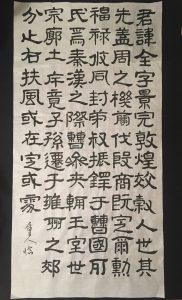 君諱全字景完敦煌效穀人也其
先蓋周之機翦伐殷商既定爾勳
福祿攸同封弟叔振鐸于曹國因
氏焉秦漢之際曹參夾輔王室世
宗廓土斥竟子孫遷于雍州之郊
分止右扶風或在安或處